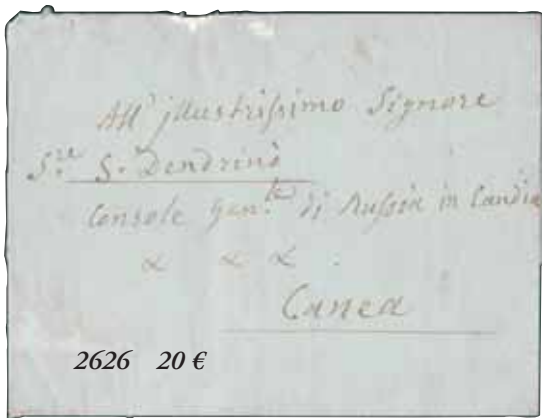 All' jllustrissimo Signore
S.re S. Dendrinò
Console Gen.le di Russia in Candia
& & & .
Canea
2626 20 €